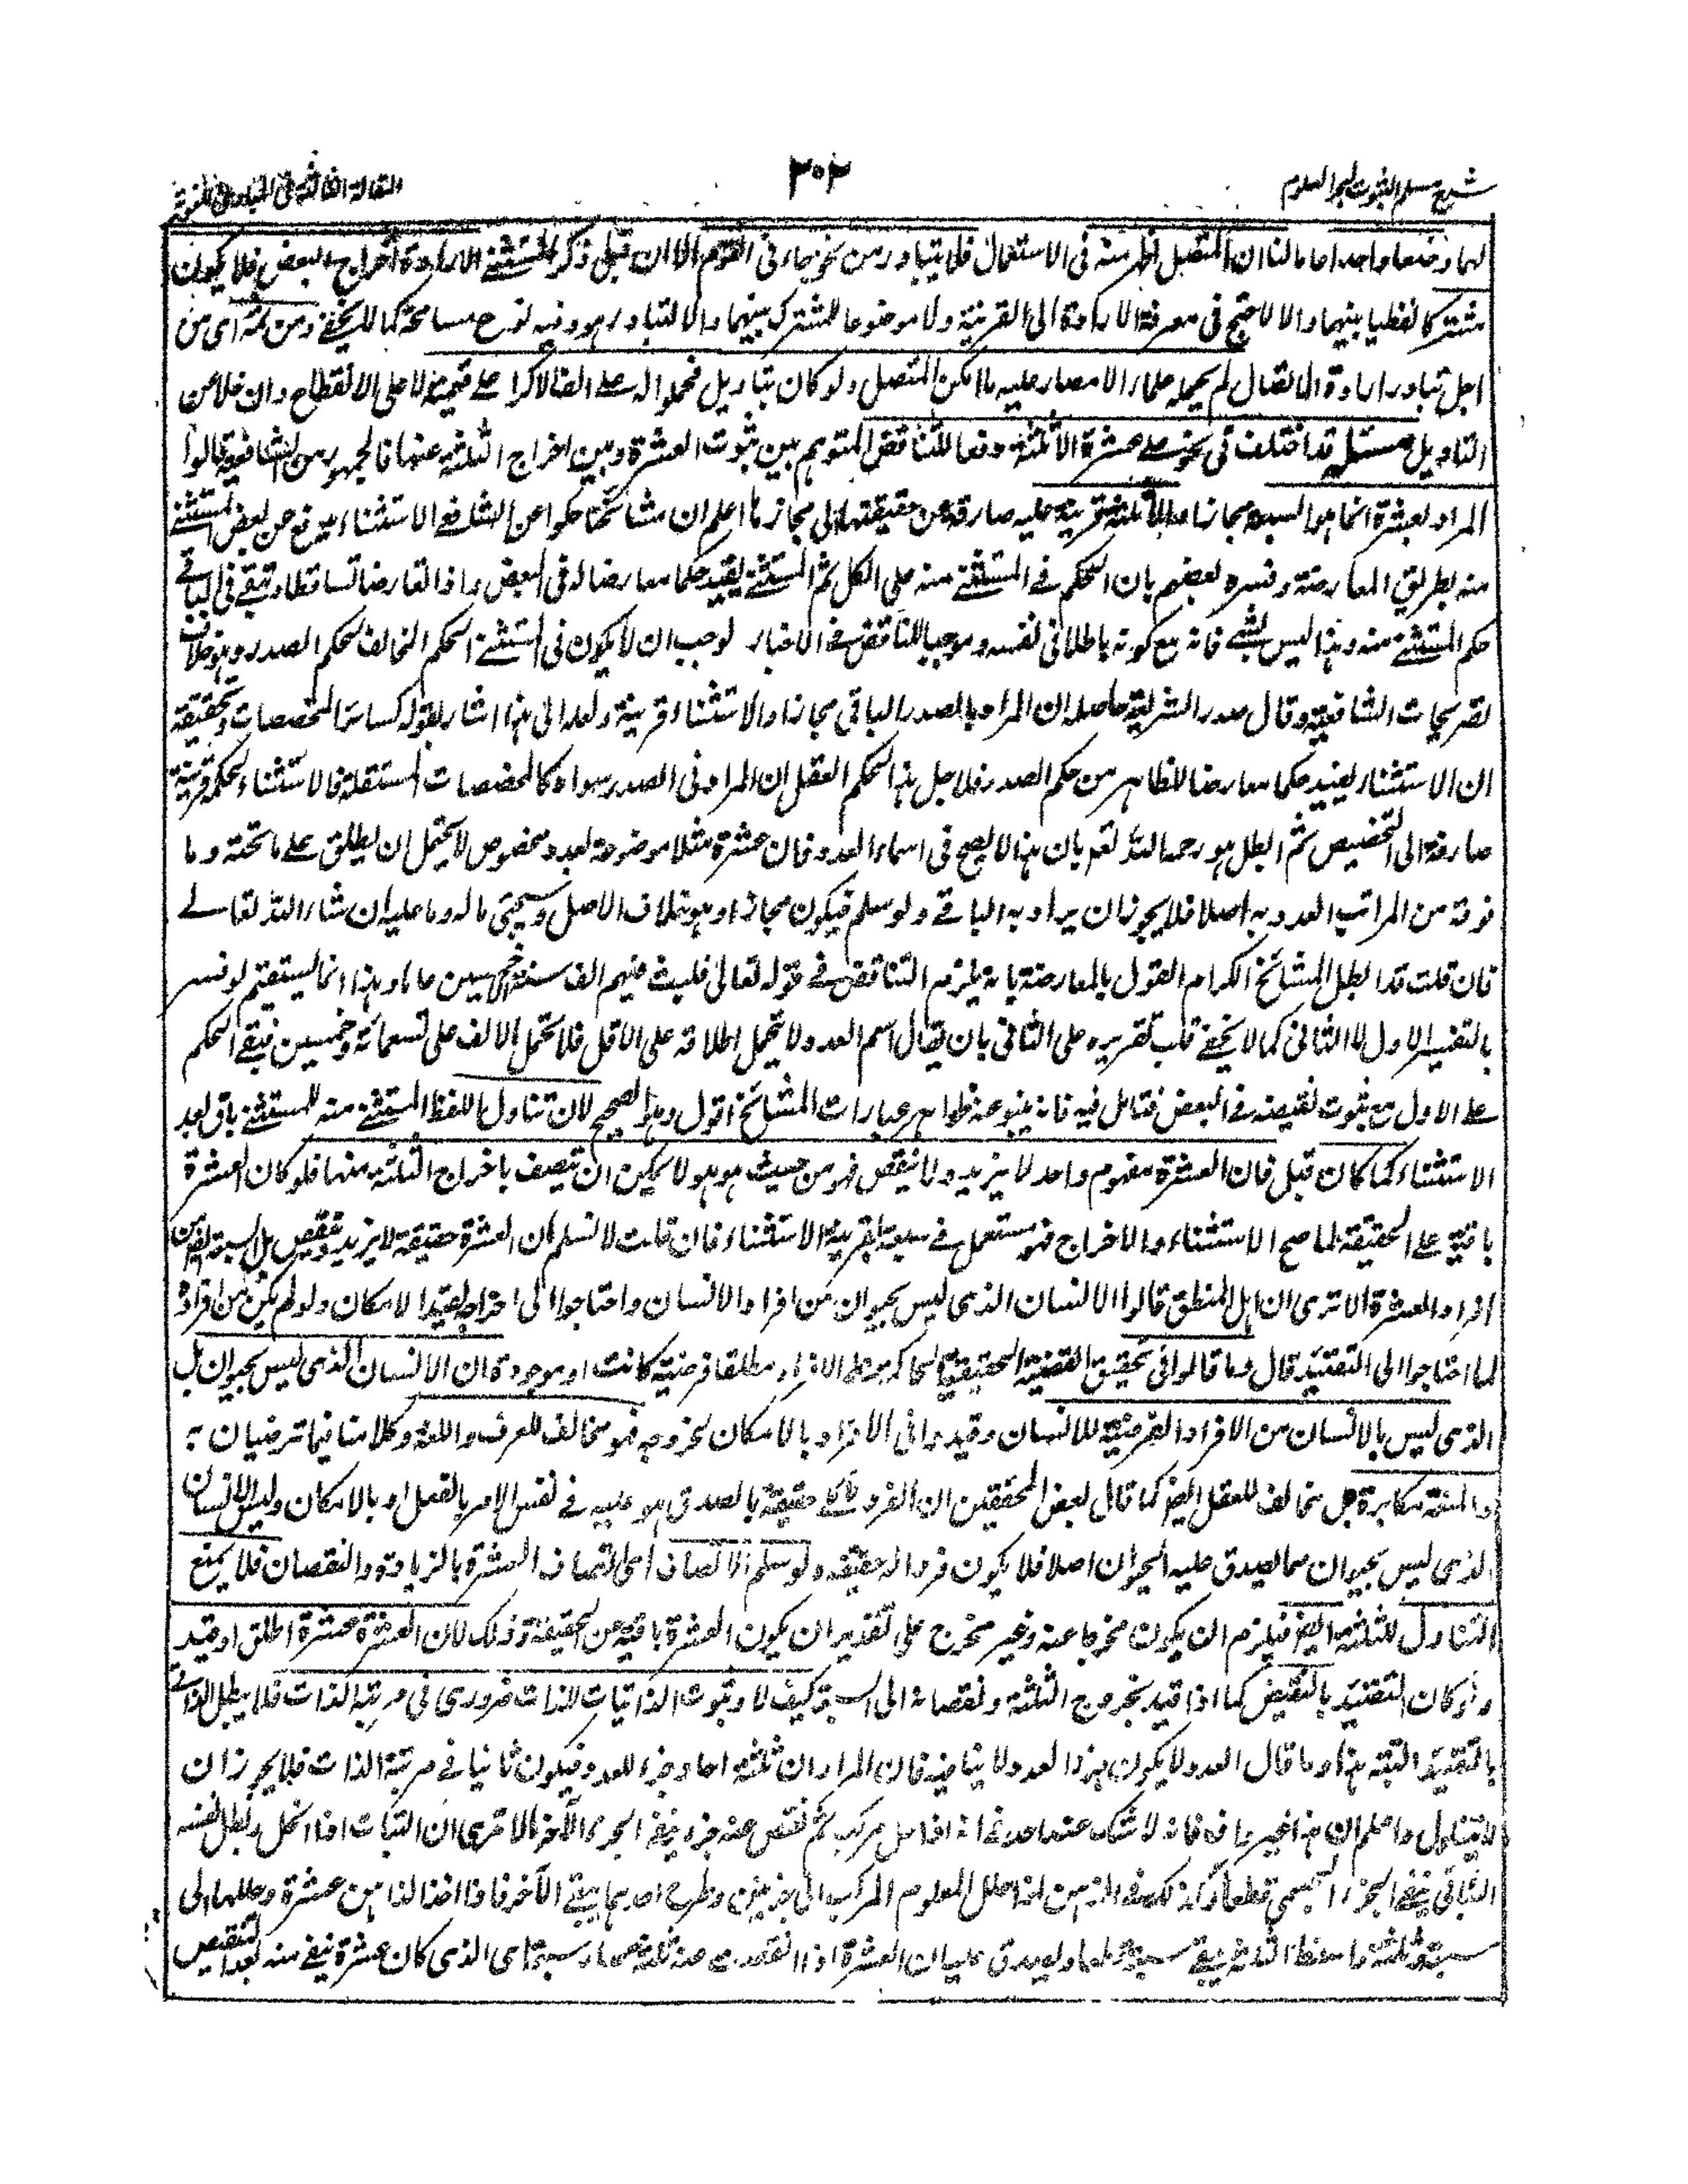 شرح مسلم الثبوت لبحر العلوم
٣٠٢
المقالة الثالثة فى المبادى اللغوية
لهما وضعا واحدا ما لنا ان المتصل اظهر منه فى الاستعمال فلا يتبادر من نحو جاءنى القوم الا ان قبل ذكر المستثنى الا ارادة اخراج البعض فلا يكون
مشتركا لفظيا بينهما والا لاحتيج فى معرفة الارادة الى القرينة ولا موضوعا للمشترك بينهما والا لتبادر هو وفيه نوع مسامحة كما لا يخفى ومن ثمه اى من
اجل تبادر ارادة الاتصال لم يحمله علماء الامصار عليه ما امكن المتصل ولو كان بتاويل فحملوا له على الف الا كرا على قيمته لا على الانقطاع وان خلا عن
التاويل مسئلة قد اختلف فى نحو على عشرة الا ثلثة دفعا للتناقض المتوهم بين ثبوت العشرة وبين اخراج الثلثة عنها فالجمهور من الشافعية قالوا
المراد بعشرة انما هو السبعة مجازا والا ثلثة قرينة عليه صارفة عن حقيقتها الى مجازها اعلم ان مشائخنا حكوا عن الشافعى الاستثناء يمنع عن بعض المستثنى
منه بطريق المعارضة وفسره بعضهم بان الحكم فى المستثنى منه على الكل ثم المستثنى يفيد حكما معارضا له فى البعض واذا تعارضا تساقطا وبقى فى الباقى
حكم المستثنى منه وهذا ليس بشئ فانه مع كونه باطلا فى نفسه وموجبا للتناقض فى الاخبار لوجب ان لا يكون فى المستثنى الحكم المخالف لحكم الصدر وهو خلاف
تصريحات الشافعية وقال صدر الشريعة حاصله ان المراد بالصدر الباقى مجازا والاستثناء قرينة ولعله الى هذا اشار بقوله كسائر المخصصات وتحقيقه
ان الاستثناء يفيد حكما معارضا للظاهر من حكم الصدر فلاجل هذا الحكم العقل ان المراد فى الصدر سواه كالمخصصات المستقلة فالاستثناء بحكمه قرينة
صارفة الى التخصيص ثم ابطل هو رحمه الله تعالى بان هذا لا يصح فى اسماء العدد فان عشرة مثلا موضوعة لعدد مخصوص لا يحتمل ان يطلق على ما تحته وما
فوقه من المراتب العددية اصلا فلا يجوز ان يراد به الباقى ولو سلم فيكون مجازا وهو خلاف الاصل وسيجئ ما له وما عليه ان شاء الله تعالى
فان قلت قد ابطل المشائخ الكرام القول بالمعارضة بانه يلزم التناقض فى قوله تعالى فلبث فيهم الف سنة الا خمسين عاما وهذا انما يستقيم لو فسر
بالتفسير الاول لا الثانى كما لا يخفى قلت تقريره على الثانى بان يقال اسم العدد لا يحتمل اطلاقه على الاقل فلا يحتمل الالف على تسعمائة وخمسين فبقى الحكم
على الاول مع ثبوت نقيضه فى البعض فتامل فيه فانه ينبو عنه ظواهر عبارات المشائخ اقول وهذا الصحيح لان تناول اللفظ المستثنى منه للمستثنى باق بعد
الاستثناء كما كان قبل فان العشرة مفهوم واحد لا يزيد ولا ينقص فهو من حيث هو هو لا يمكن ان يتصف باخراج الثلثة منها فلو كان العشرة
باقية على الحقيقة لما صح الاستثناء والاخراج فهو مستعمل فى سبعة بقرينة الاستثناء فان قلت لا نسلم ان العشرة حقيقة لا يزيد ولا ينقص بل السبعة ايضا من
افراد العشرة الا ترى ان اهل المنطق قالوا الانسان الذى ليس بحيوان من افراد الانسان واحتاجوا الى اخراجه بقيد الامكان ولو لم يكن من افراده
لما احتاجوا الى التقييد قال وما قالوا فى تحقيق القضية الحقيقية الحاكمة على الافراد مطلقا فرضية كانت او موجودة ان الانسان الذى ليس بحيوان بل
الذى ليس بالانسان من الافراد الفرضية للانسان وقيدوا فى الافراد بالامكان لخروجه فهو مخالف للعرف واللغة وكلامنا فيما ترضيان به
والمنقة مكابرة بل مخالف للعقل ايضا كما قال بعض المحققين ان الفرد للكلى حقيقة ما يصدق هو عليه فى نفس الامر بالفعل او بالامكان وليس الانسان
الذى ليس بحيوان مما يصدق عليه الحيوان اصلا فلا يكون فردا له حقيقة ولو سلم الاتصاف اى اتصاف العشرة بالزيادة والنقصان فلا يمنع
التناول للثلثة ايضا فيلزم ان يكون مخرجا عنه وغير مخرج على تقدير ان يكون العشرة باقية عن الحقيقة وذلك لان العشرة عشرة اطلق او قيد
ولو كان التقييد بالنقيض كما اذا قيد بخروج الثلثة ونقصانه الى السبعة كيف لا وثبوت الذاتيات للذات ضرورى فى مرتبة الذات فلا يبطل الذاتى
بالتقييد البتة هذا وما قال العدد لا يكون جزء العدد لا ينافيه فان المراد ان ثلثة احاد جزء للعدد فيكون ثانيا فى مرتبة الذات فلا يجوز ان
لا يتناول واعلم ان هذا غير واف فانه لا شك عند احد فى انه اذا حلل مركب ثم نقص عنه جزء يبقى الجزء الآخر الا ترى ان النبات اذا انحل وبطل نفسه
النباتى يبقى الجزء الجسمى قطعا وكذلك فى الذهن اذا حلل المعلوم المركب الى جزئين وطرح احدهما يبقى الآخر فاذا اخذ الذهن عشرة وحللها الى
سبعة وثلثة واسقط الثلثة يبقى سبعة ويصدق عليه ان العشرة اذا انقص عنه ثلثة صار سبعة اى الذى كان عشرة يبقى منه بعد التنقيص